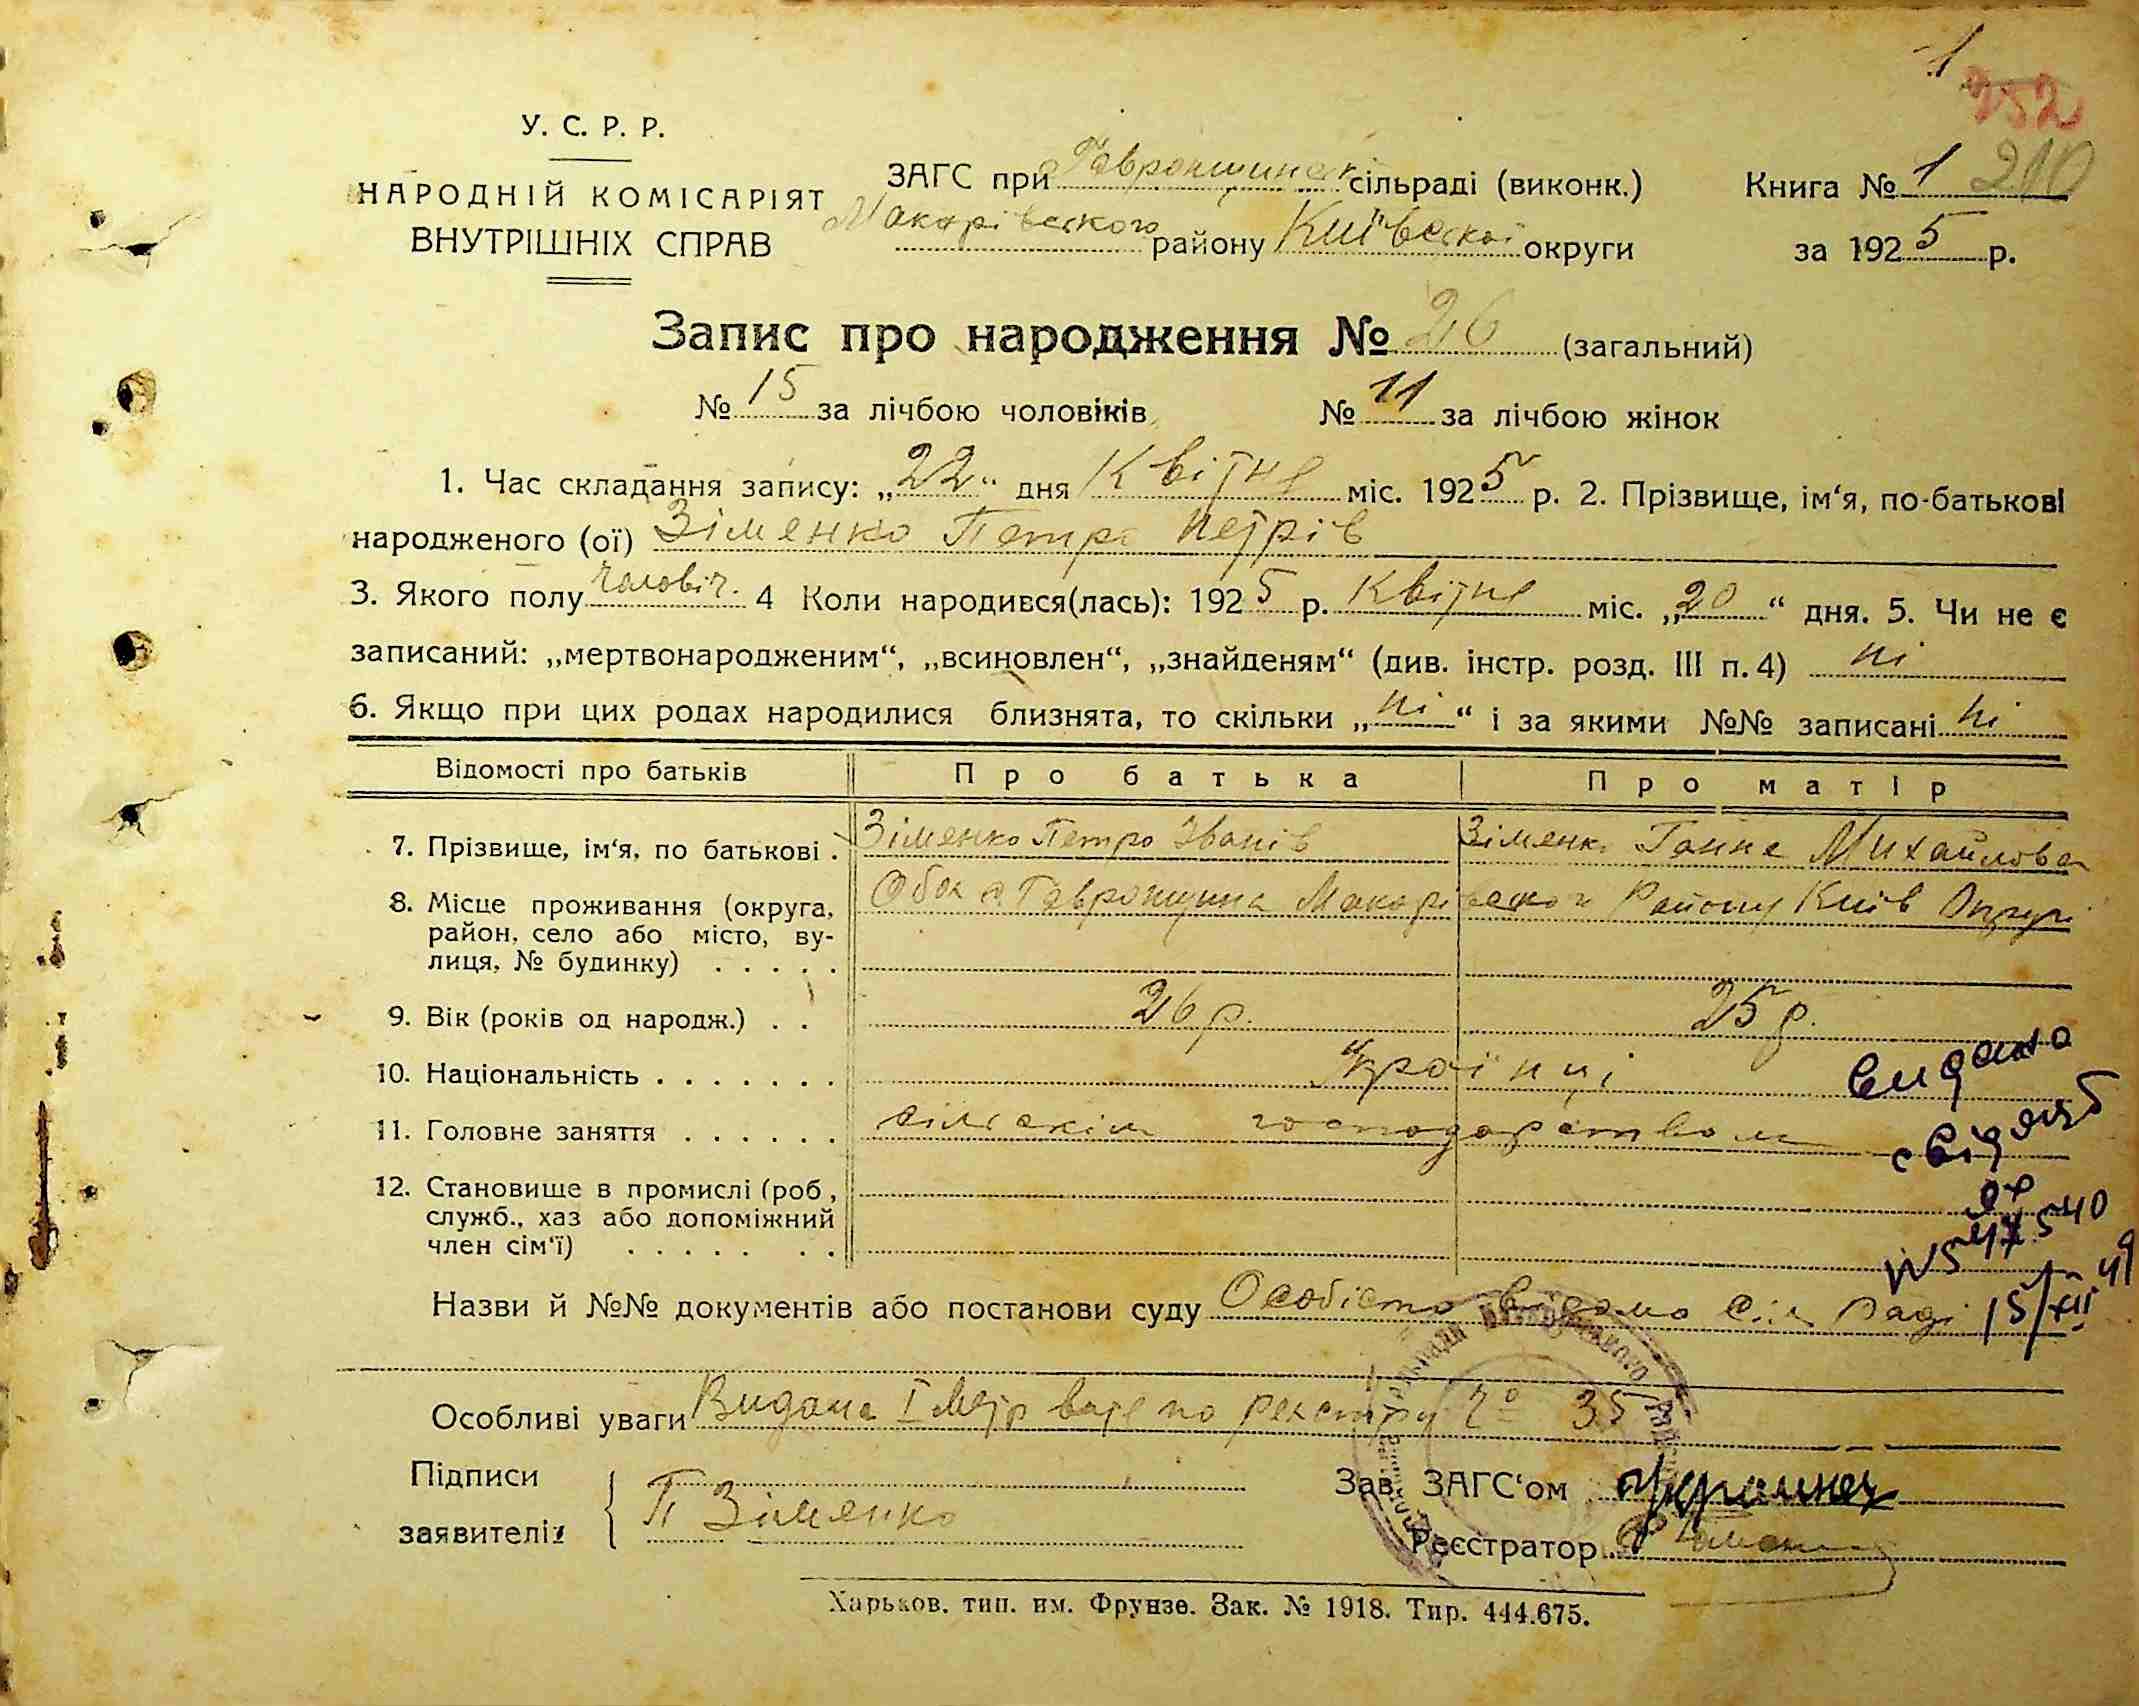 1
252
У. С. Р. Р.
НАРОДНІЙ КОМІСАРІЯТ
ВНУТРІШНІХ СПРАВ
ЗАГС при Гавронщинск сільраді (виконк.)
Макарівского району Київскої округи
Книга № 1 210
за 1925 р.
Запис про народження № 26 (загальний)
№ 15 за лічбою чоловіків, № 11 за лічбою жінок
1. Час складання запису: „22“ дня Квітня міс. 1925 р. 2. Прізвище, ім‘я, по-батькові
народженого (ої) Зіменко Петро Петрів
3. Якого полу чоловіч. 4 Коли народився(лась): 1925 р. Квітня міс. „20“ дня. 5. Чи не є
записаний: „мертвонародженим“, „всиновлен“, „знайденям“ (див. інстр. розд. III п. 4) ні
6. Якщо при цих родах народилися близнята, то скільки „ні“ і за якими №№ записані ні
Відомості про батьків Про батька Про матір
7. Прізвище, ім‘я, по батькові . Зіменко Петро Іванів Зіменко Ганна Михайлова
8. Місце проживання (округа, Обоє с Гавронщина Макарівского Району Київ Округи
район, село або місто, ву-
лиця, № будинку) . . . . .
9. Вік (років од народж.) . . 26 р. 25 р.
10. Національність . . . . . . . Українці
11. Головне заняття . . . . . . сільскім господарством
12. Становище в промислі (роб,
служб., хаз або допоміжний
член сім‘ї) . . . . . . .
видано
свідоцт
№ 547540
15/XII 49
Назви й №№ документів або постанови суду Особисто відомо Сіль Раді
Особливі уваги Видана І по реєстру № 35
Підписи
заявителів П Зіменко
Зав. ЗАГС‘ом Украинец
Реєстратор
Харьков. тип. им. Фрунзе. Зак. № 1918. Тир. 444.675.